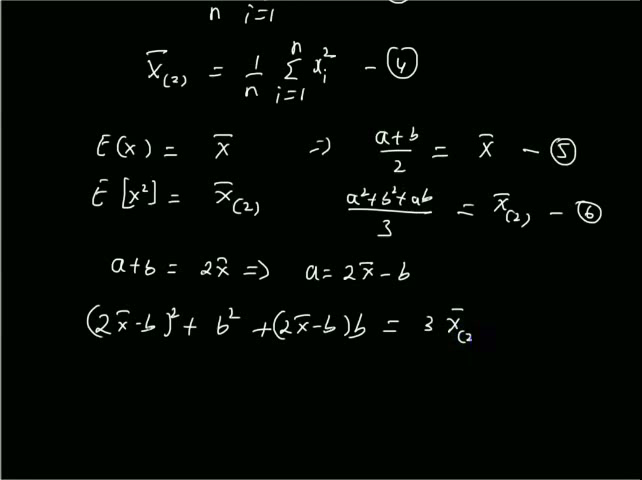 n i=1
X̄(2) = 1/n Σ(i=1 to n) xᵢ² - ④
E(x) = x̄ => (a+b)/2 = x̄ - ⑤
E[x²] = x̄(2) (a²+b²+ab)/3 = x̄(2) - ⑥
a+b = 2x̄ => a = 2x̄-b
(2x̄-b)² + b² + (2x̄-b)b = 3 x̄(2